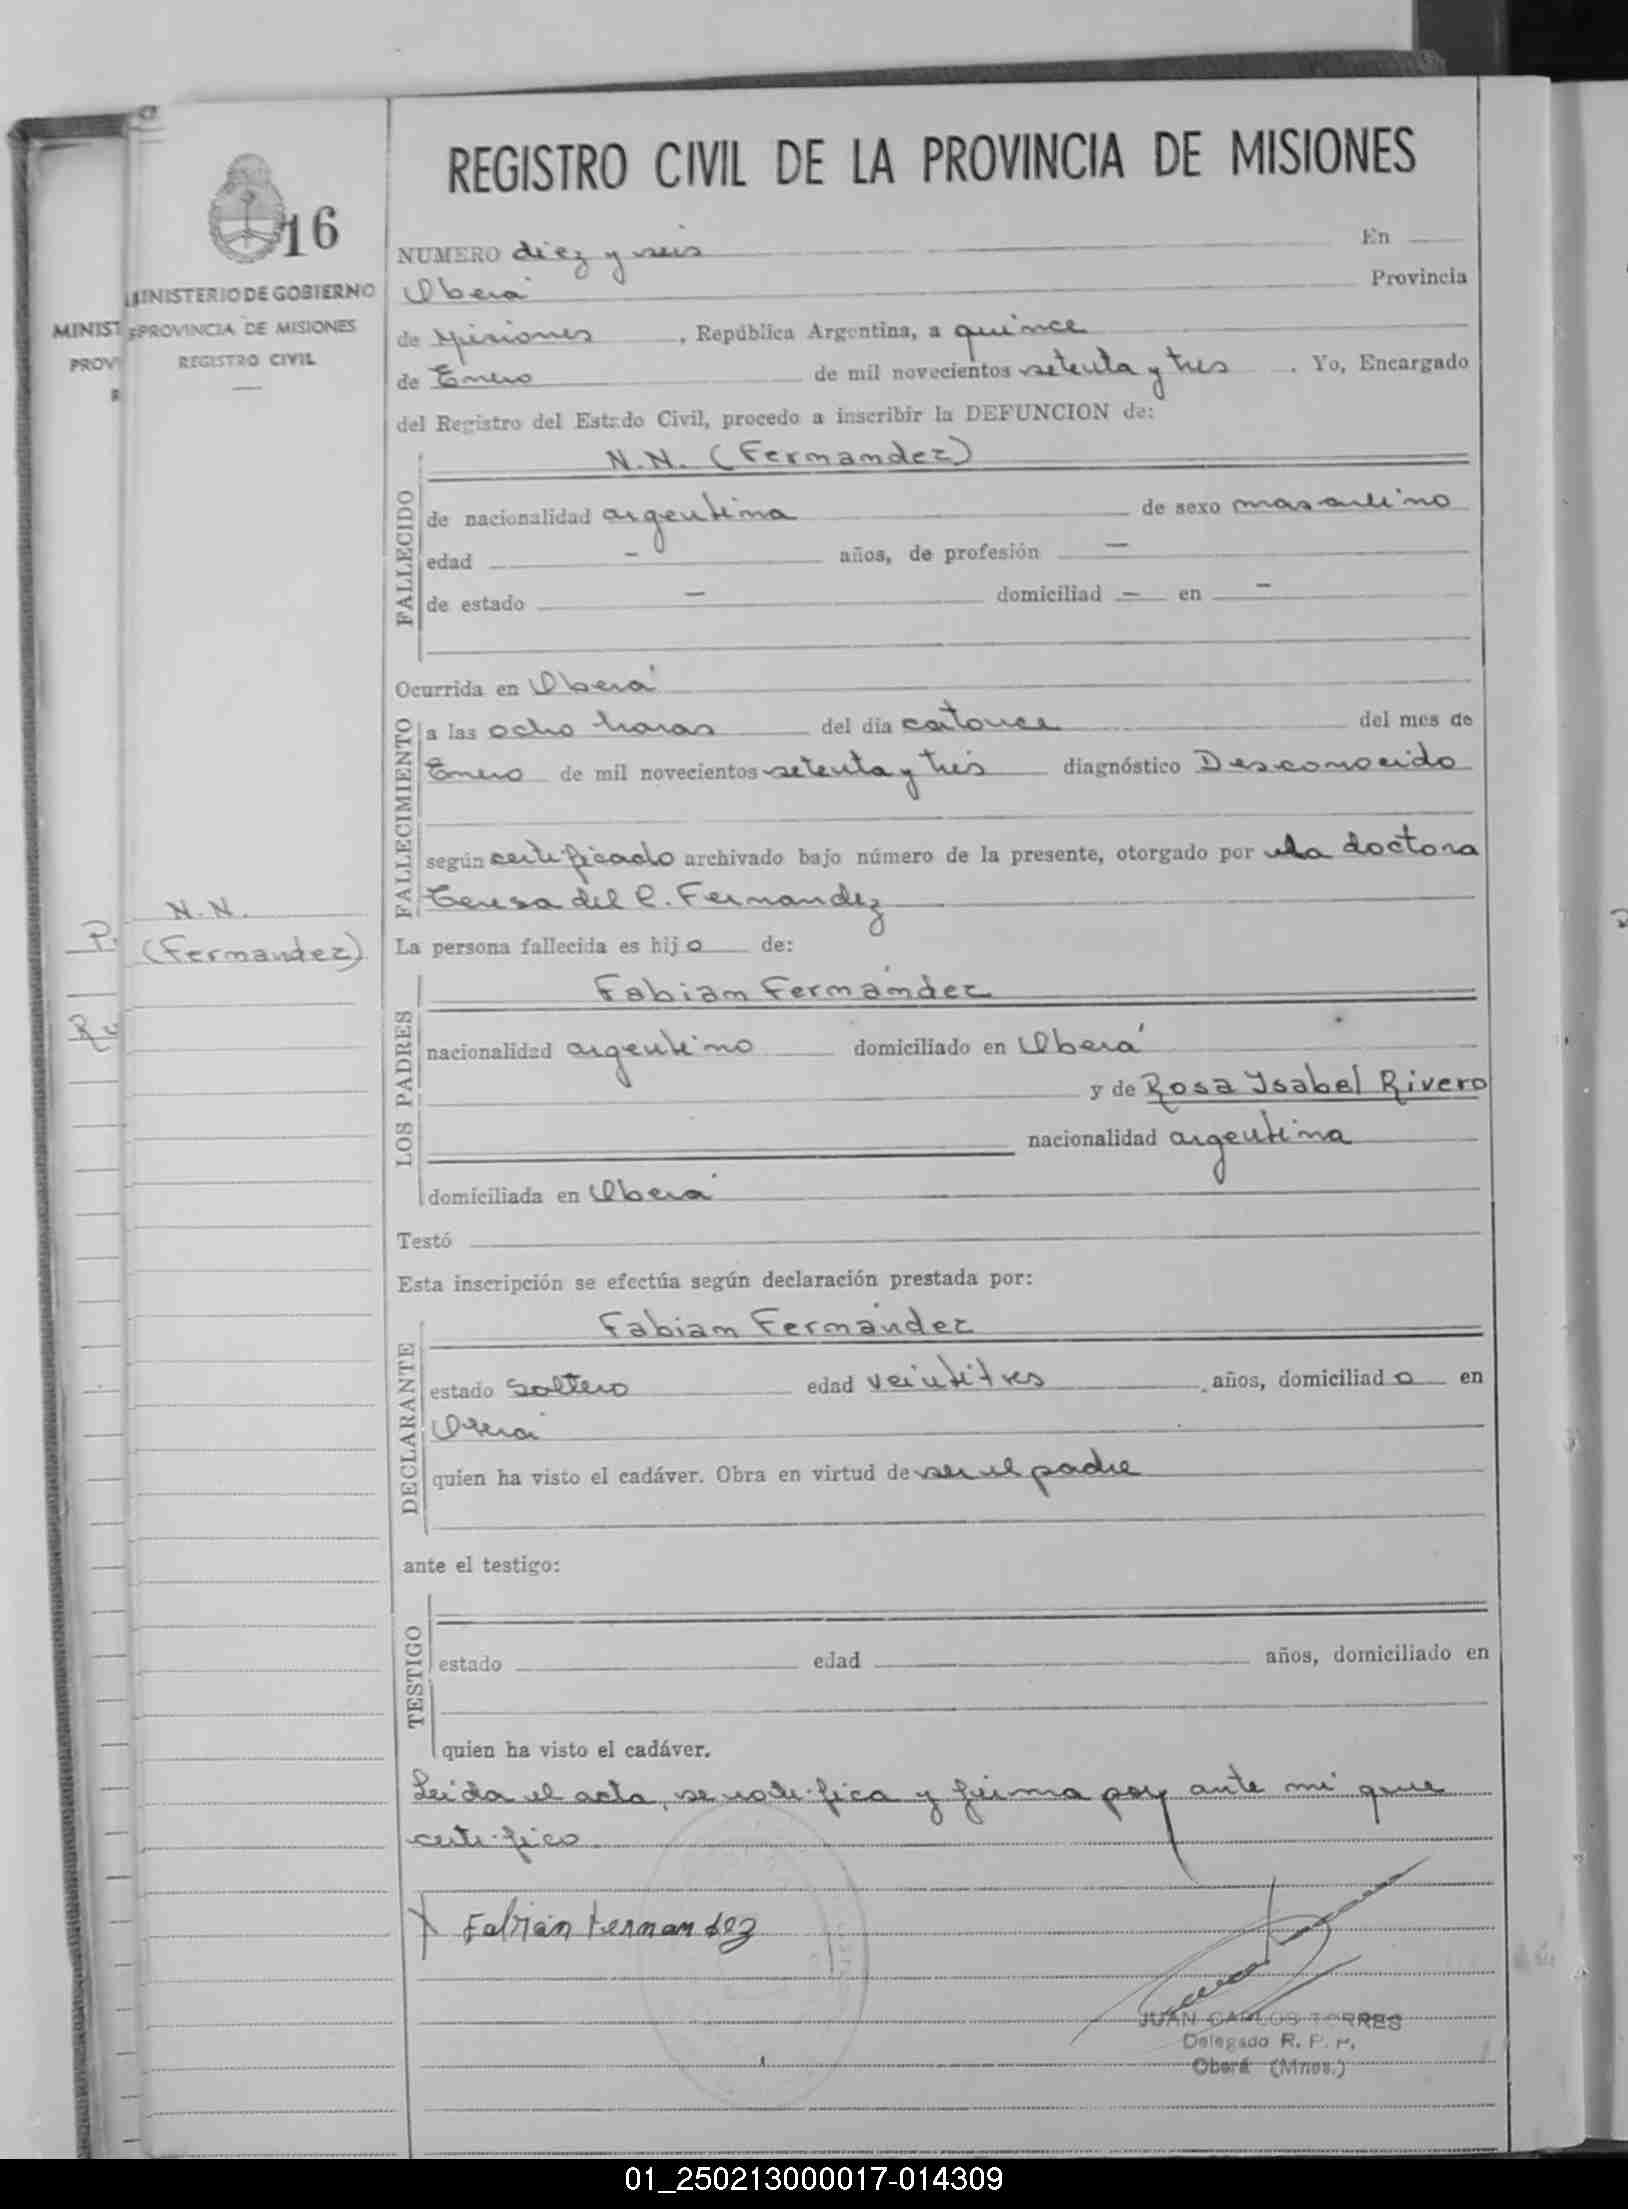 REGISTRO CIVIL DE LA PROVINCIA DE MISIONES
16
MINISTERIO DE GOBIERNO
PROVINCIA DE MISIONES
REGISTRO CIVIL
MINIST
PROV
NUMERO diez y seis En
Oberá Provincia
de Misiones, República Argentina, a quince
de Enero de mil novecientos setenta y tres. Yo, Encargado
del Registro del Estado Civil, procedo a inscribir la DEFUNCION de:
N.N. (Fernandez)
FALLECIDO
de nacionalidad argentina de sexo masculino
edad - años, de profesión -
de estado - domiciliad - en -
Ocurrida en Oberá
FALLECIMIENTO
a las ocho horas del día catorce del mes de
Enero de mil novecientos setenta y tres diagnóstico Desconocido
según certificado archivado bajo número de la presente, otorgado por la doctora
Teresa del C. Fernandez
N.N.
(Fernandez)
La persona fallecida es hijo de:
LOS PADRES
Fabian Fernández
nacionalidad argentino domiciliado en Oberá
y de Rosa Ysabel Rivero
nacionalidad argentina
domiciliada en Oberá
Testó
Esta inscripción se efectúa según declaración prestada por:
DECLARANTE
Fabian Fernández
estado soltero edad veintitres años, domiciliado en
Oberá
quien ha visto el cadáver. Obra en virtud de ser el padre
ante el testigo:
TESTIGO
estado edad años, domiciliado en
quien ha visto el cadáver.
Leida el acta, se ratifica y firma por ante mi que
certifico
X Fabián Fernandez
JUAN CARLOS TORRES
Delegado R. P. P.
Oberá (Mnes.)
01_250213000017-014309